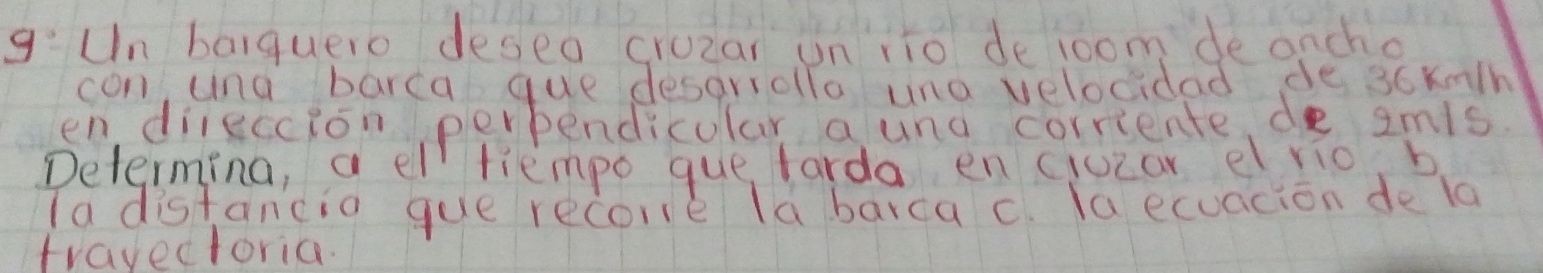 9. Un barquero desea cruzar un río de 100m de ancho
con una barca que desarrolla una velocidad de 36 km/h
en dirección perpendicular a una corriente de 2m/s.
Determina, a el tiempo que tarda en cruzar el río b
la distancia que recorre la barca c. la ecuación de la
trayectoria.